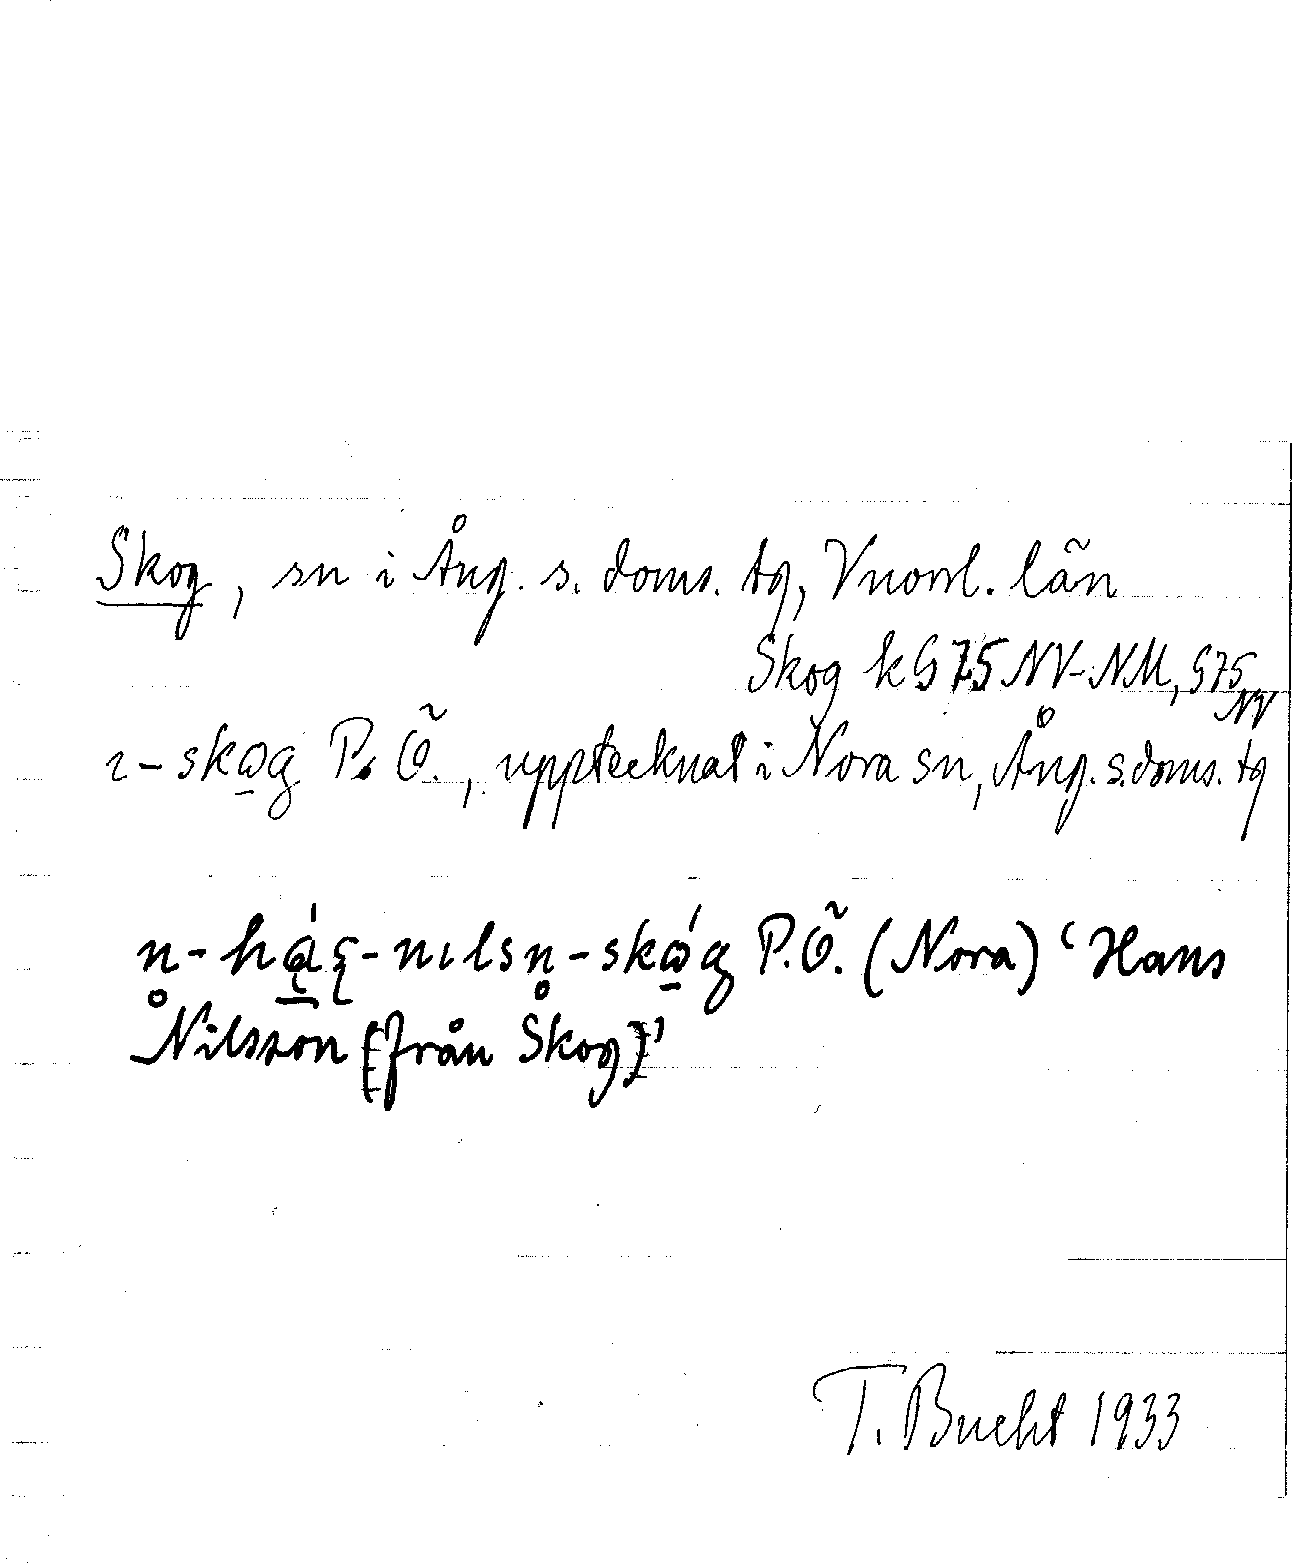 Skog, sn i Ång. s. doms. tg, Vnorrl. län
Skog k G 75 NV-NM, G75 NV
ɩ-skω̱g P. Ö., upptecknat i Nora sn, Ång. s. doms. tg
n̥-hą́ş-nılsn̥-skώ̱g P.Ö. (Nora) ‘Hans
Nilsson [från Skog]’
T. Bucht 1933